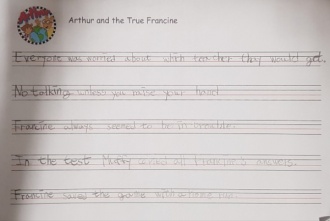 Arthur and the True Francine
Everyone was worried about which teacher they would get.
No talking unless you raise your hand
Francine always seemed to be in trouble.
In the test Muffy copied all Francine's answers.
Francine saved the game with a home run.